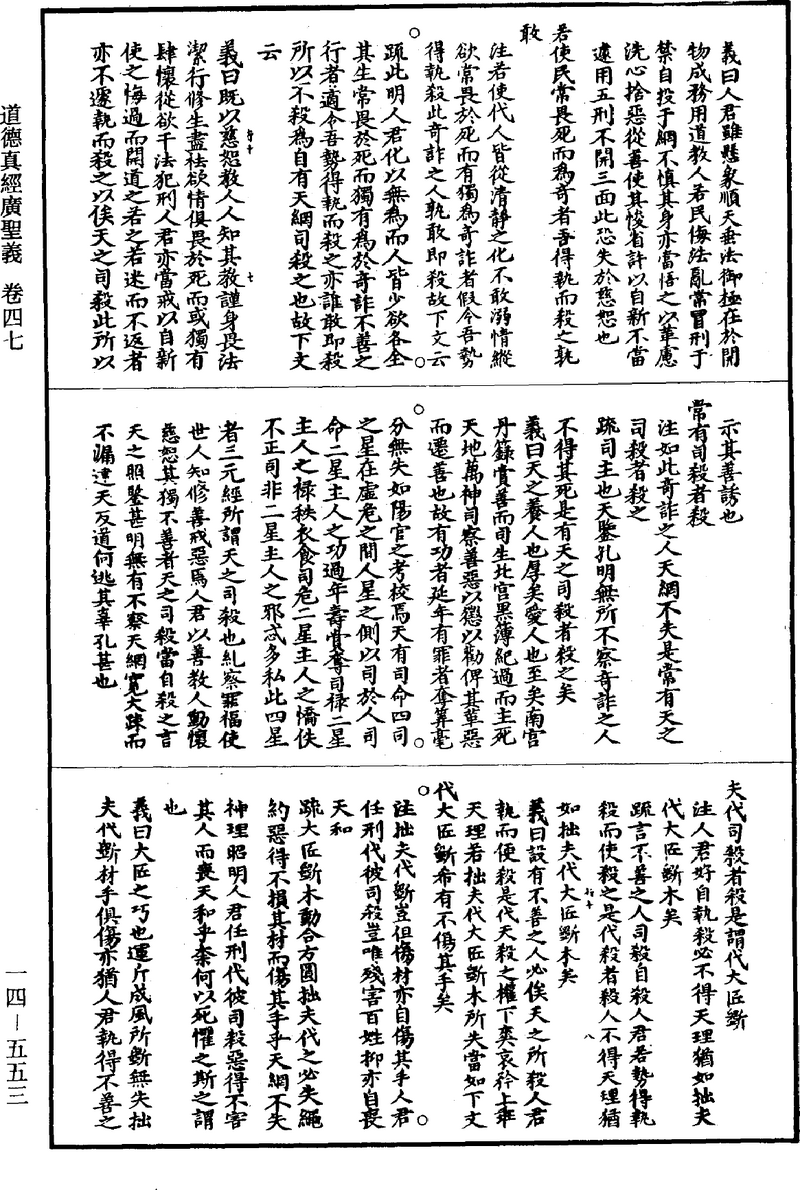 道德真經廣聖義　卷四七
一四－五五三
義曰人君雖懸象順天垂法御極在於開
物成務用道教人若民侮法亂常冒刑于
禁自投于網不慎其身亦當悟之以革慮
洗心捨惡從善使其悛省許以自新不當
遽用五刑不開三面此恐失於慈恕也
若使民常畏死而為奇者吾得執而殺之孰
敢
注若使代人皆從清靜之化不敢溺情縱
欲常畏於死而有獨為奇詐者假令吾勢
得執殺此奇詐之人孰敢即殺故下文云
疏此明人君化以無為而人皆少欲各全
其生常畏於死而獨有為於奇詐不善之
行者適令吾勢得執而殺之亦誰敢即殺
所以不殺為自有天網司殺之也故下文
云
義曰既以慈恕教人人知其教謹身畏法
潔行修生盡祛欲情俱畏於死而或獨有
肆懷從欲干法犯刑人君亦當戒以自新
使之悔過而開道之若之若迷而不返者
亦不遽執而殺之以俟天之司殺此所以
示其善誘也
常有司殺者殺
注如此奇詐之人天網不失是常有天之
司殺者殺之
疏司主也天鑒孔明無所不察奇詐之人
不得其死是有天之司殺者殺之矣
義曰天之養人也厚矣愛人也至矣南宮
丹籙賞善而司生北宮黑簿紀過而主死
天地萬神司察善惡以懲以勸俾其革惡
而遷善也故有功者延年有罪者奪算毫
分無失如陽官之考校焉天有司命四司
之星在虛危之間人星之側以司於人司
命二星主人之功過年壽賞奪司祿二星
主人之祿秩衣食司危二星主人之憍佚
不正司非二星主人之邪忒多私此四星
者三元經所謂天之司殺也糺察罪福使
世人知修善戒惡焉人君以善教人動懷
慈恕其獨不善者天之司殺當自殺之言
天之照鑒甚明無有不察天網寬大疎而
不漏違天反道何逃其辜孔甚也
夫代司殺者殺是謂代大匠斲
注人君好自執殺必不得天理猶如拙夫
代大匠斲木矣
疏言不善之人司殺自殺人君若勢得執
殺而使殺之是代殺者殺人不得天理猶
如拙夫代大匠斲木矣
義曰設有不善之人必俟天之所殺人君
執而便殺是代天殺之權下奕哀矜上乖
天理若拙夫代大匠斲木所失當如下文
代大匠斲希有不傷其手矣
注拙夫代斲豈但傷材亦自傷其手人君
任刑代彼司殺豈唯殘害百姓抑亦自喪
天和
疏大匠斲木動合方圓拙夫代之必失繩
約惡得不損其材而傷其手乎天網不失
神理昭明人君任刑代彼司殺惡得不害
其人而喪天和乎柰何以死懼之斯之謂
也
義曰大匠之巧也運斤成風所斲無失拙
夫代斲材手俱傷亦猶人君執得不善之